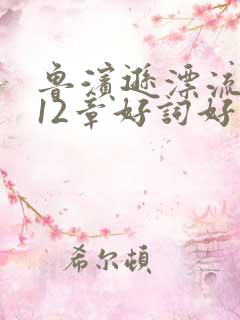 鲁滨逊漂流
12章好词好
希尔顿